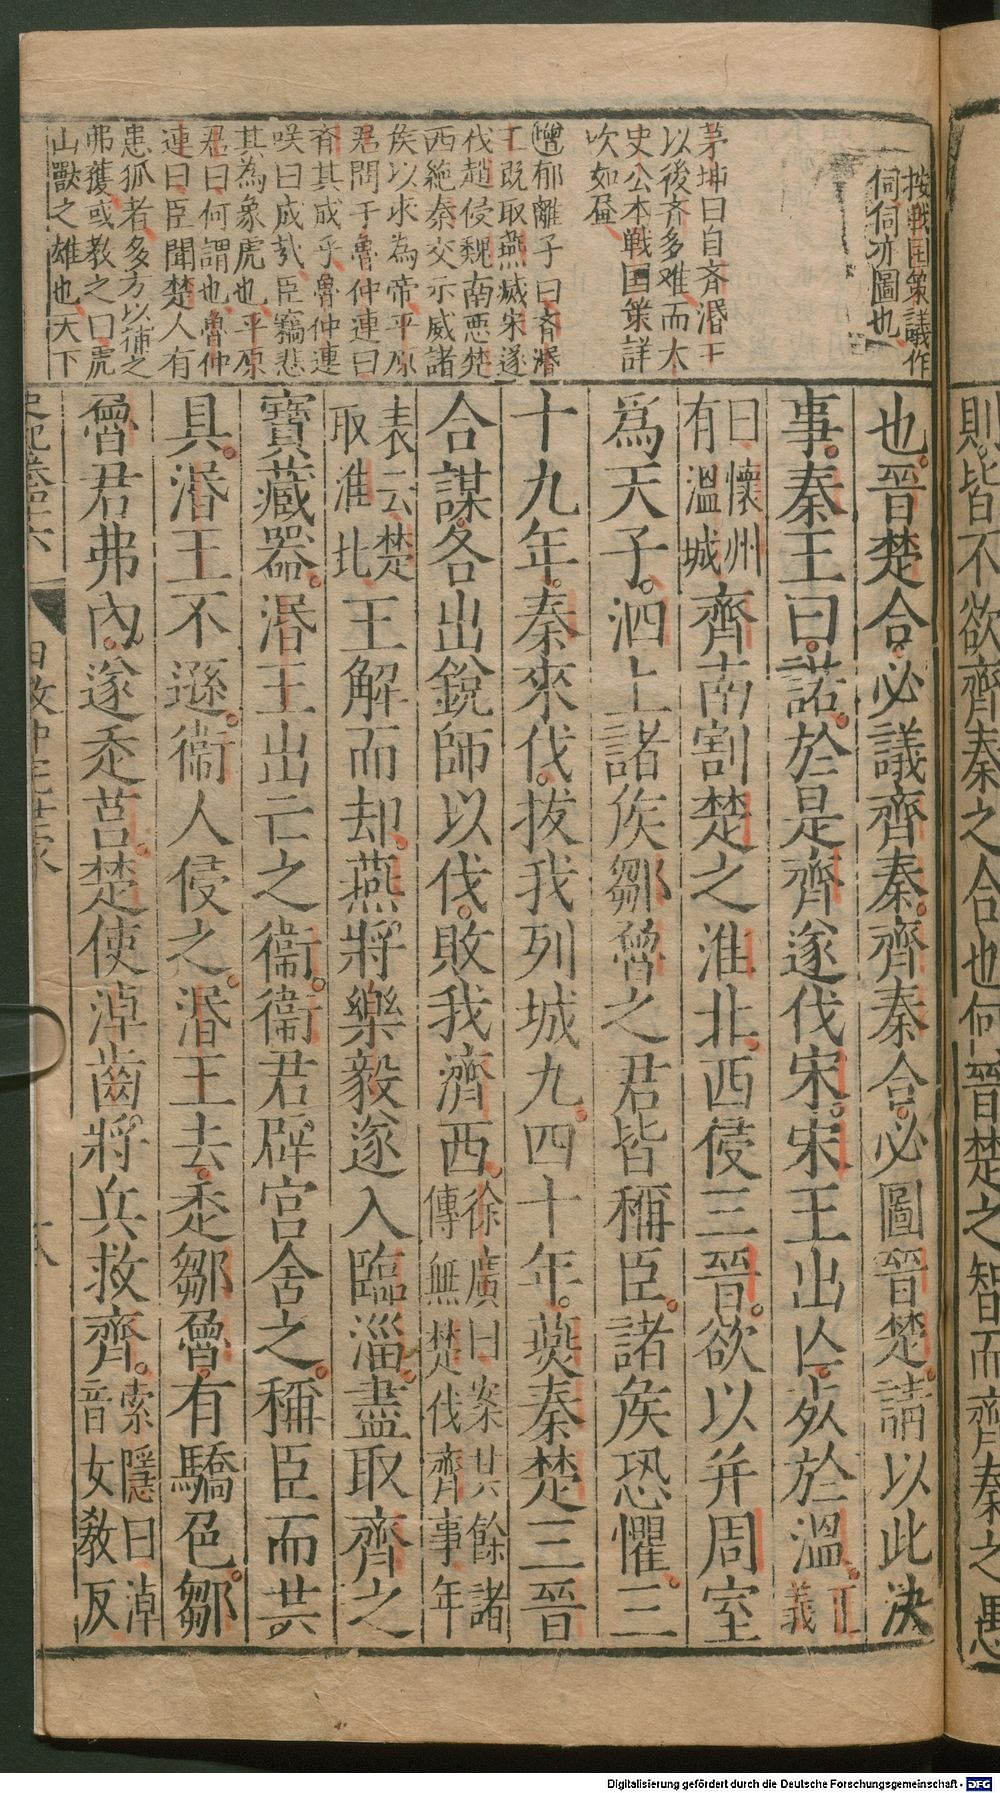 則皆不欲齊秦之合也何晉楚之智而齊秦之愚
按戰国策議作
伺伺亦圖也
茅坤曰自齐湣王
以後齐多难而太
史公本戦国策詳
次如
增郁離子曰斉湣
王既取燕滅宋遂
伐趙侵魏南悪楚
西絶秦交示威諸
矦以求為帝平原
君問于魯仲連曰
斉其成乎魯仲連
咲曰成㢤臣竊悲
其為象虎也平原
君曰何謂也魯仲
連曰臣聞楚人有
患狐者多方以捕之
弗獲或教之曰虎
山獸之雄也天下
也晉楚合必議齊秦齊秦合必圖晉楚請以此決
事秦王曰諾於是齊遂伐宋宋王出亾歿於溫正義
曰懷州有溫城齊南割楚之淮北西侵三晉欲以并周室
爲天子泗上諸矦鄒魯之君皆稱臣諸矦恐懼三
十九年秦來伐拔我列城九四十年燕秦楚三晉
合謀各出銳師以伐敗我濟西徐廣曰案其餘諸傳無楚伐齊事年
表云楚取淮北王解而却燕將樂毅遂入臨淄盡取齊之
寶藏器湣王出亡之衞衞君辟宮舍之稱臣而共
具湣王不遜衞人侵之湣王去走鄒魯有驕色鄒
魯君弗內遂走莒楚使淖齒將兵救齊索隱曰淖音女敎反
史記卷四十六
田敬仲完世家
十八
Digitalisierung gefördert durch die Deutsche Forschungsgemeinschaft - DFG